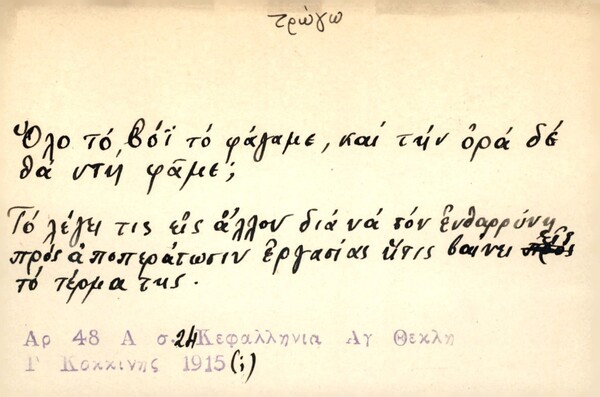 τρώγω
Ὅλο τό βόϊ τό φάγαμε, καί τήν ὀρά δέ
θά ντή φᾶμε;
Τό λέγει τις εἰς ἄλλον διά νά τόν ἐνθαρρύνῃ
πρός ἀποπεράτωσιν ἐργασίας ἥτις βαίνει εἰς
τό τέρμα της.
Αρ 48 Α σ. 24 Κεφαλληνια Αγ Θεκλη
Γ Κοκκινης 1915 (;)